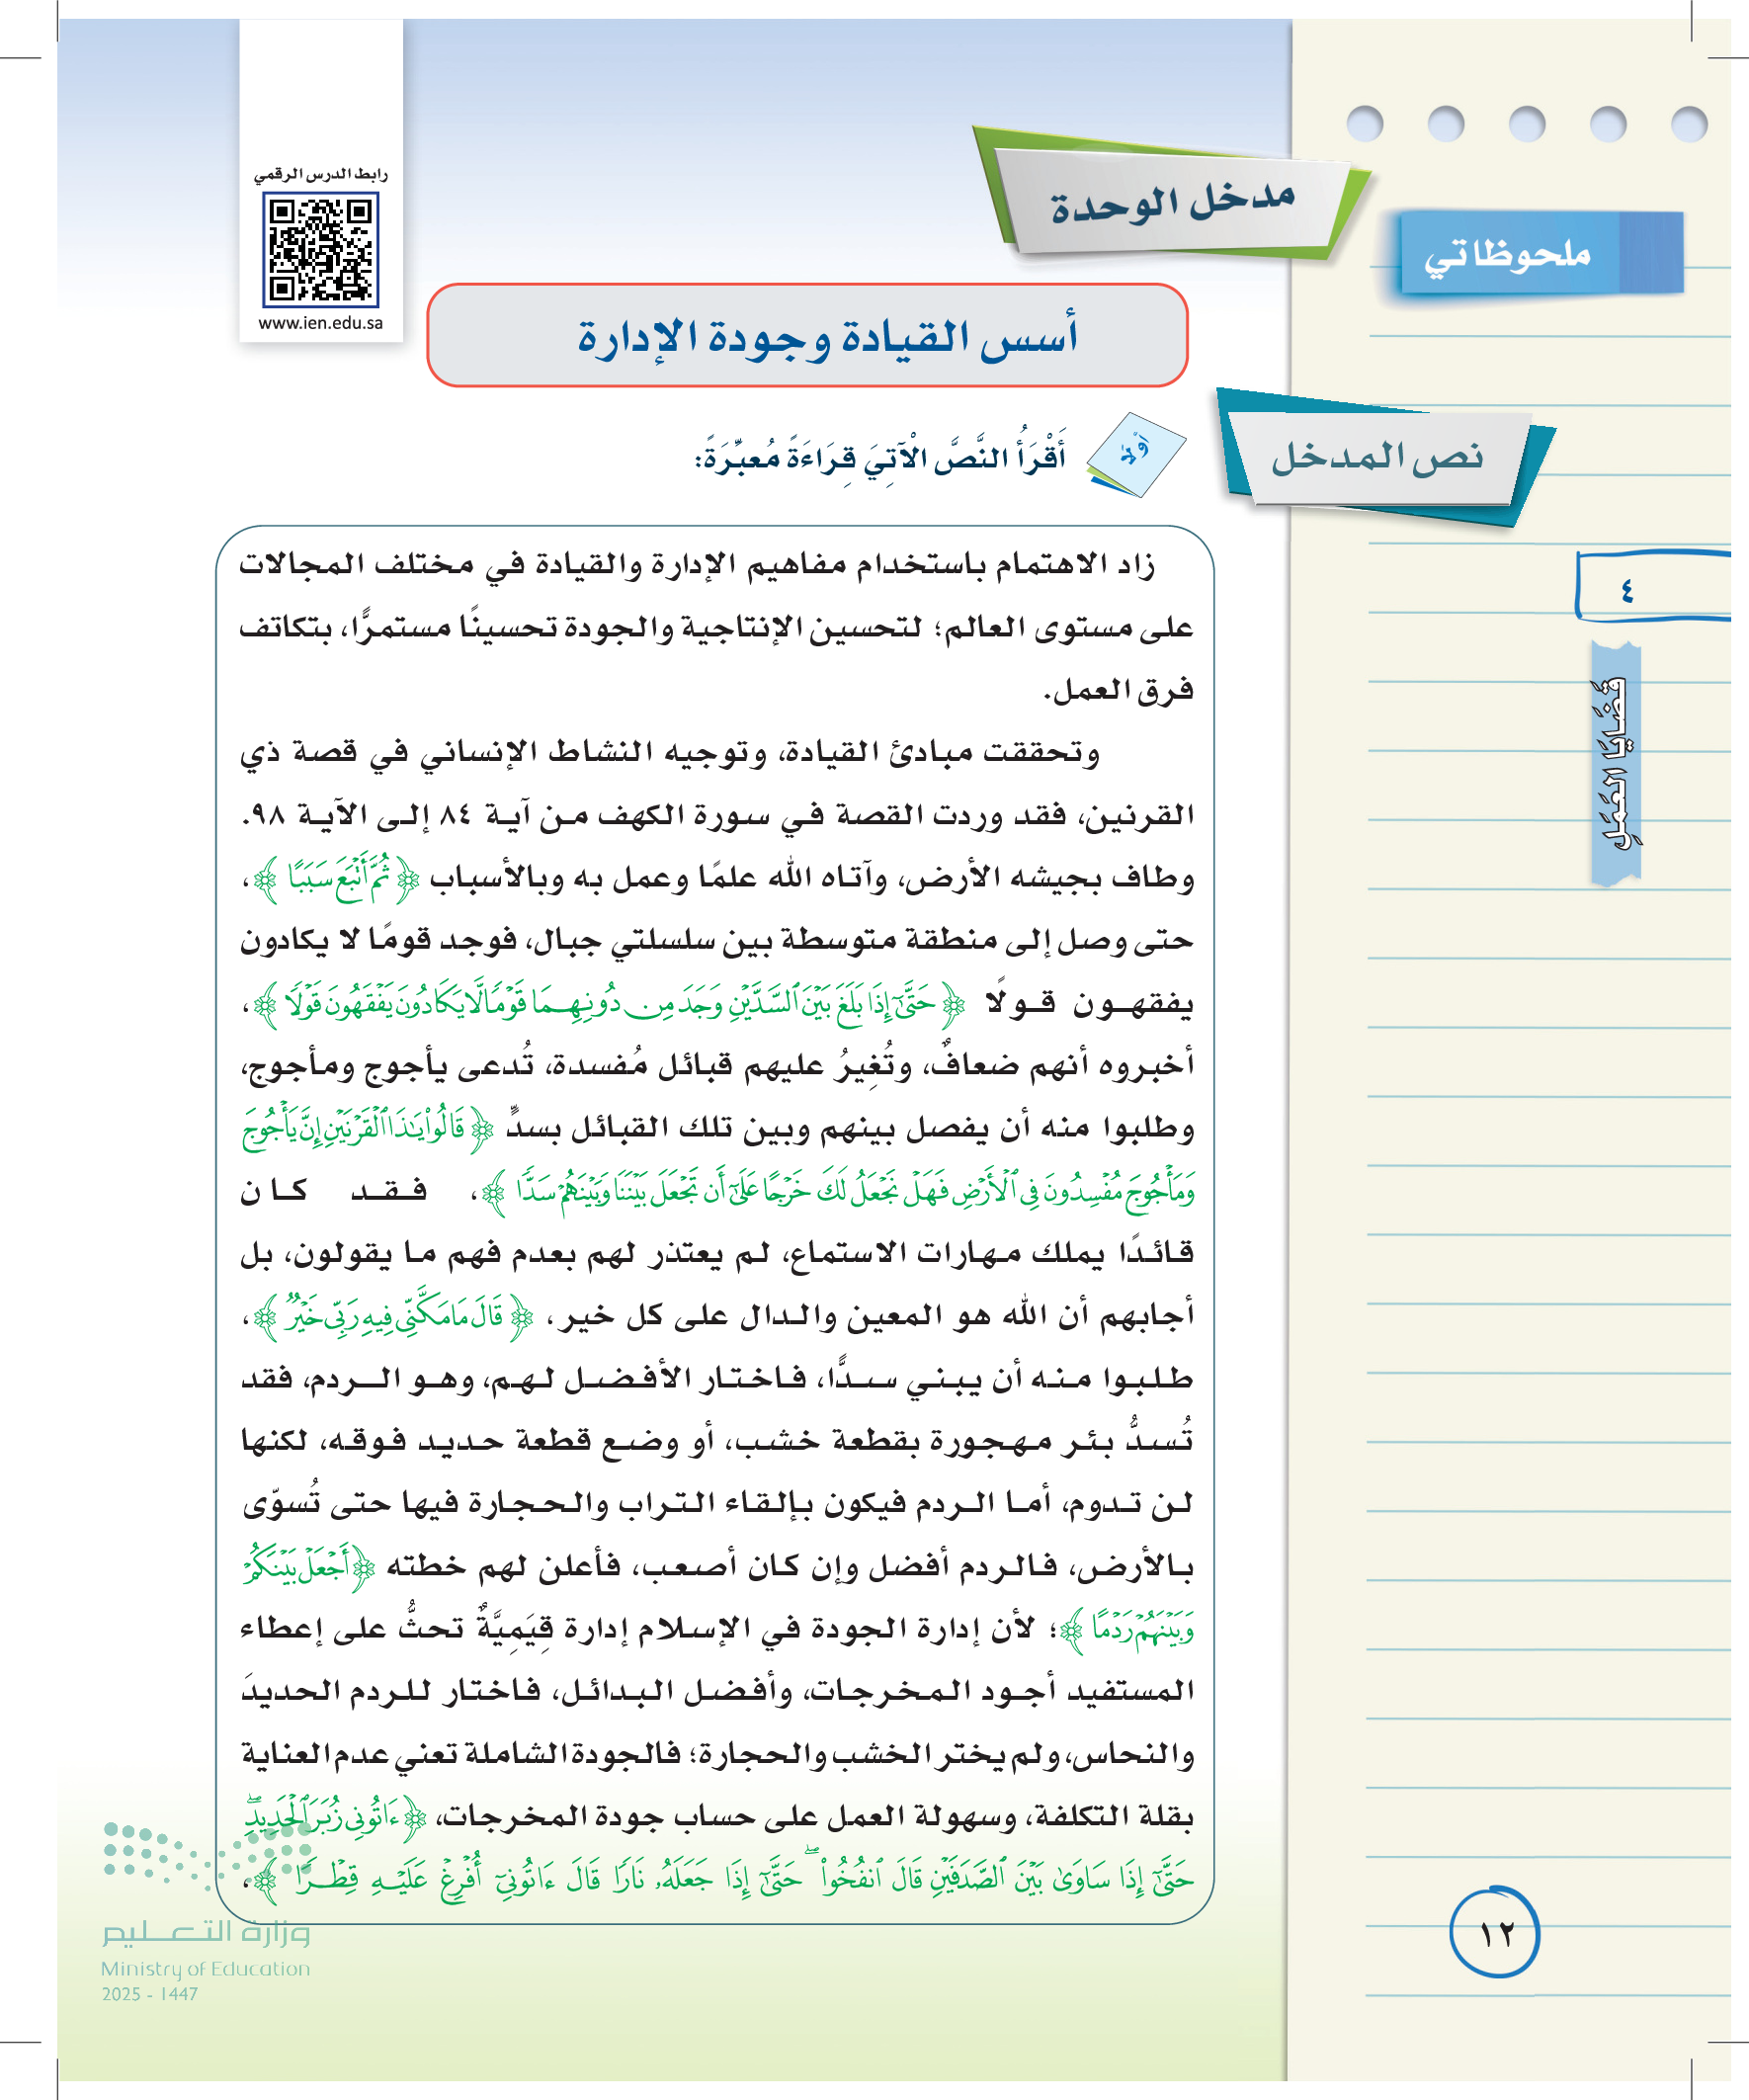 رابط الدرس الرقمي
www.ien.edu.sa
مدخل الوحدة
ملحوظاتي
أسس القيادة وجودة الإدارة
نص المدخل
أولًا
أَقْرَأُ النَّصَّ الْآتِيَ قِرَاءَةً مُعبِّرَةً:
زاد الاهتمام باستخدام مفاهيم الإدارة والقيادة في مختلف المجالات
على مستوى العالم؛ لتحسين الإنتاجية والجودة تحسينًا مستمرًّا، بتكاتف
فرق العمل.
وتحققت مبادئ القيادة، وتوجيه النشاط الإنساني في قصة ذي
القرنين، فقد وردت القصة في سورة الكهف من آية ٨٤ إلى الآية ٩٨.
وطاف بجيشه الأرض، وآتاه الله علمًا وعمل به وبالأسباب ﴿ثُمَّ أَتْبَعَ سَبَبًا﴾،
حتى وصل إلى منطقة متوسطة بين سلسلتي جبال، فوجد قومًا لا يكادون
يفقهون قولًا ﴿حَتَّىٰٓ إِذَا بَلَغَ بَيْنَ ٱلسَّدَّيْنِ وَجَدَ مِن دُونِهِمَا قَوْمًا لَّا يَكَادُونَ يَفْقَهُونَ قَوْلًا﴾،
أخبروه أنهم ضعافٌ، وتُغِيرُ عليهم قبائل مُفسدة، تُدعى يأجوج ومأجوج،
وطلبوا منه أن يفصل بينهم وبين تلك القبائل بسدٍّ ﴿قَالُوا۟ يَٰذَا ٱلْقَرْنَيْنِ إِنَّ يَأْجُوجَ
وَمَأْجُوجَ مُفْسِدُونَ فِى ٱلْأَرْضِ فَهَلْ نَجْعَلُ لَكَ خَرْجًا عَلَىٰٓ أَن تَجْعَلَ بَيْنَنَا وَبَيْنَهُمْ سَدًّا﴾، فقد كان
قائدًا يملك مهارات الاستماع، لم يعتذر لهم بعدم فهم ما يقولون، بل
أجابهم أن الله هو المعين والدال على كل خير، ﴿قَالَ مَا مَكَّنِّى فِيهِ رَبِّى خَيْرٌ﴾،
طلبوا منه أن يبني سدًّا، فاختار الأفضل لهم، وهو الردم، فقد
تُسدُّ بئر مهجورة بقطعة خشب، أو وضع قطعة حديد فوقه، لكنها
لن تدوم، أما الردم فيكون بإلقاء التراب والحجارة فيها حتى تُسوّى
بالأرض، فالردم أفضل وإن كان أصعب، فأعلن لهم خطته ﴿أَجْعَلْ بَيْنَكُمْ
وَبَيْنَهُمْ رَدْمًا﴾؛ لأن إدارة الجودة في الإسلام إدارة قِيَمِيَّةٌ تحثُّ على إعطاء
المستفيد أجود المخرجات، وأفضل البدائل، فاختار للردم الحديدَ
والنحاس، ولم يختر الخشب والحجارة؛ فالجودة الشاملة تعني عدم العناية
بقلة التكلفة، وسهولة العمل على حساب جودة المخرجات، ﴿ءَاتُونِى زُبَرَ ٱلْحَدِيدِ ۖ
حَتَّىٰٓ إِذَا سَاوَىٰ بَيْنَ ٱلصَّدَفَيْنِ قَالَ ٱنفُخُوا۟ ۖ حَتَّىٰٓ إِذَا جَعَلَهُۥ نَارًا قَالَ ءَاتُونِىٓ أُفْرِغْ عَلَيْهِ قِطْرًا﴾،
٤
قَضَايَا العَمَلِ
وزارة التعليم
Ministry of Education
2025 - 1447
١٢